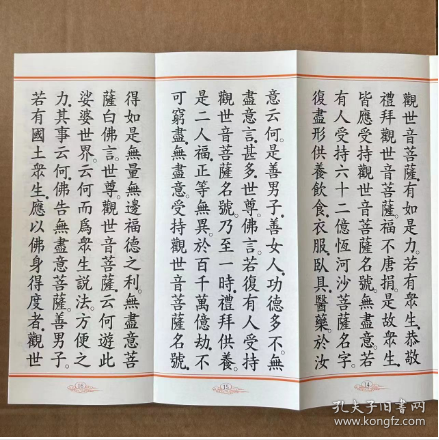 觀世音菩薩。有如是力。若有衆生。恭敬
禮拜觀世音菩薩。福不唐捐。是故衆生。
皆應受持觀世音菩薩名號。無盡意。若
有人受持六十二億恆河沙菩薩名字。
復盡形供養飲食。衣服。臥具。醫藥。於汝
14
意云何。是善男子。善女人。功德多不。無
盡意言。甚多。世尊。佛言。若復有人受持
觀世音菩薩名號。乃至一時。禮拜供養。
是二人福。正等無異。於百千萬億劫。不
可窮盡。無盡意。受持觀世音菩薩名號。
15
得如是無量無邊福德之利。無盡意菩
薩白佛言。世尊。觀世音菩薩。云何遊此
娑婆世界。云何而爲衆生說法。方便之
力。其事云何。佛告無盡意菩薩。善男子。
若有國土衆生。應以佛身得度者。觀世
16
孔夫子旧书网
www.kongfz.com